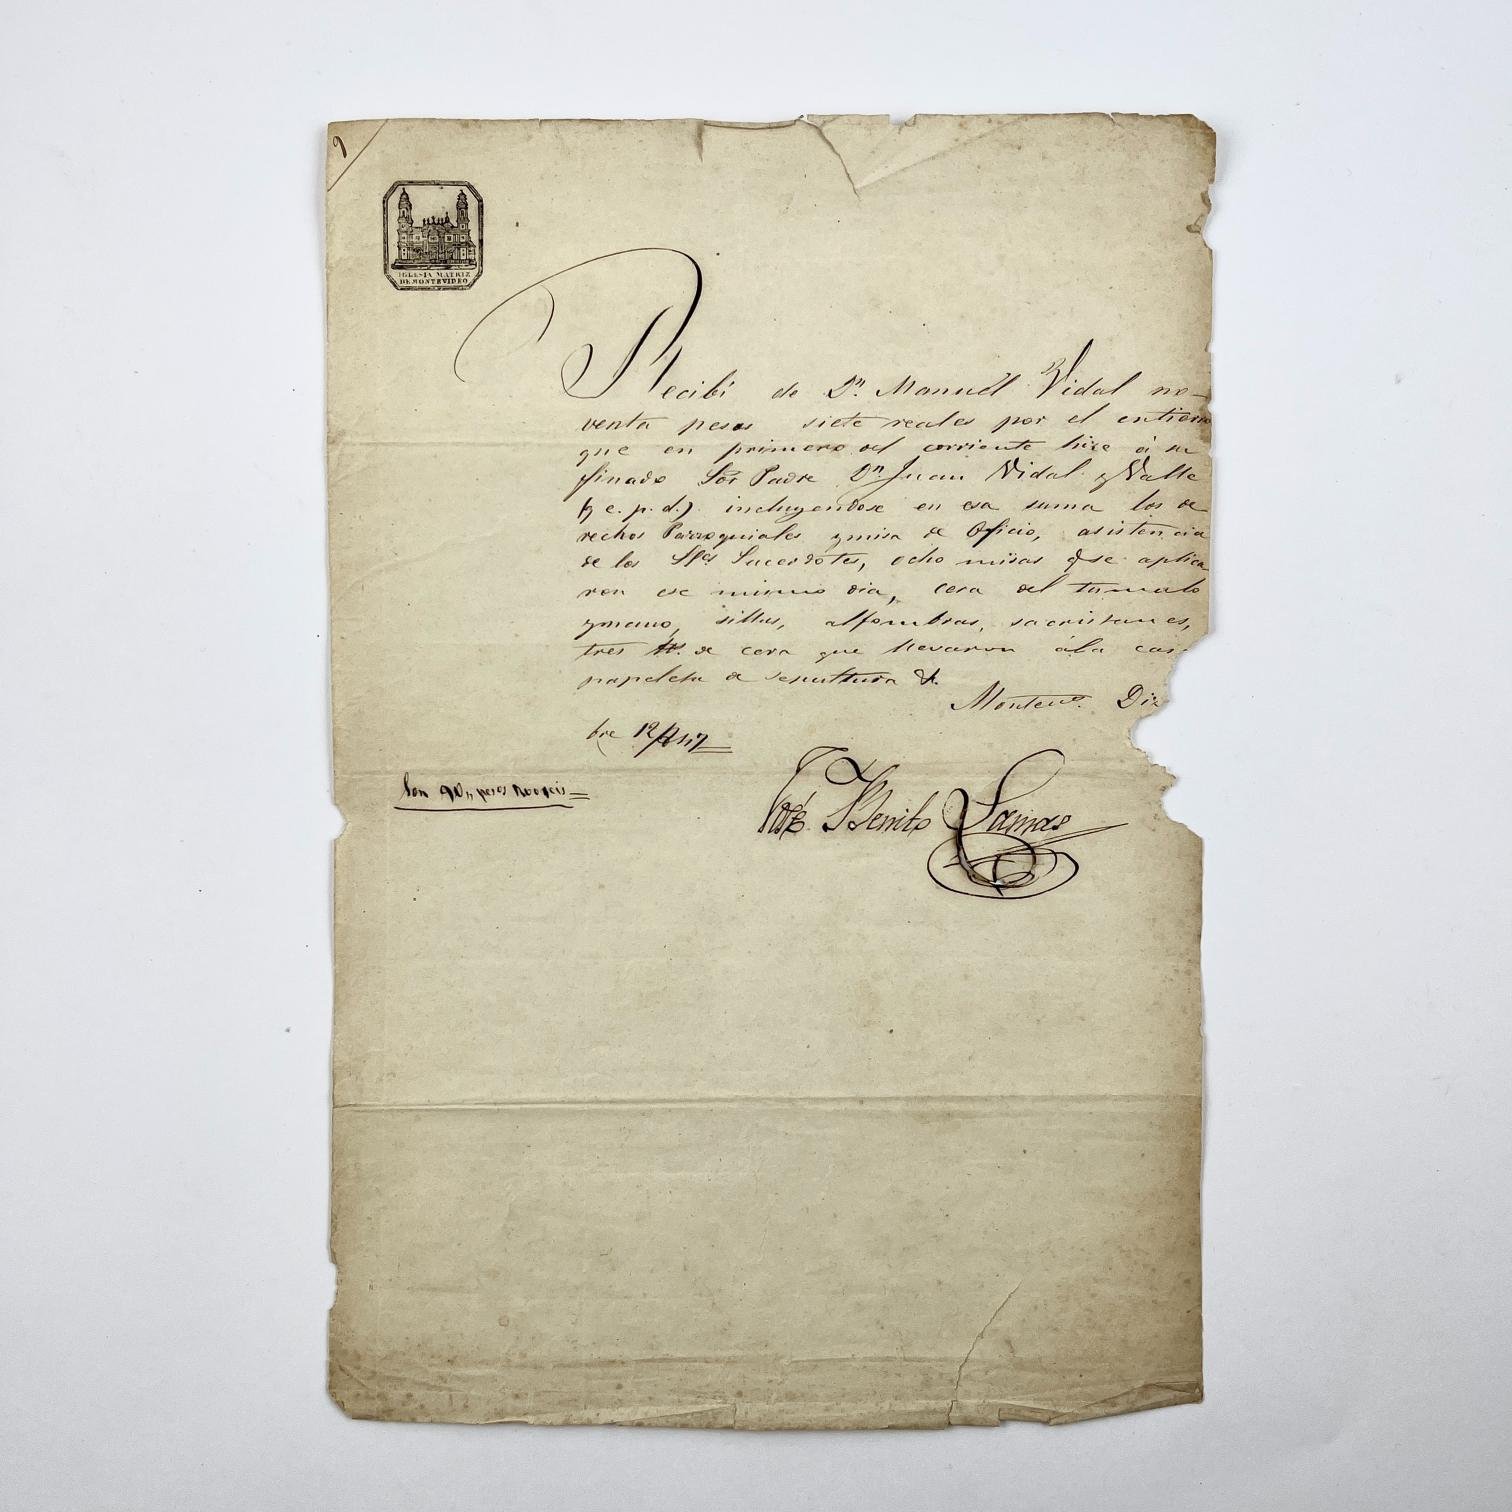 9
IGLESIA MATRIZ
DE MONTEVIDEO
Recibi de Dn. Manuel Vidal no-
venta pesos siete reales por el entierro
que en primero del corriente hice á su
finado Sor Padre Dn. Juan Vidal y Valle
(q e. p. d.) incluyendose en esa suma los de
rechos Parroquiales y misa de Oficio, asistencia
de los Sres Sacerdotes, ocho misas q. se aplica
ron ese mismo dia, cera del tumulo
y mano, sillas, alfombras, sacristanes,
tres de cera que llevaron á la cas
papeleta de sepultura &.
Montevo. Diz
bre 12
Son 90 pesos
José Benito Lamas